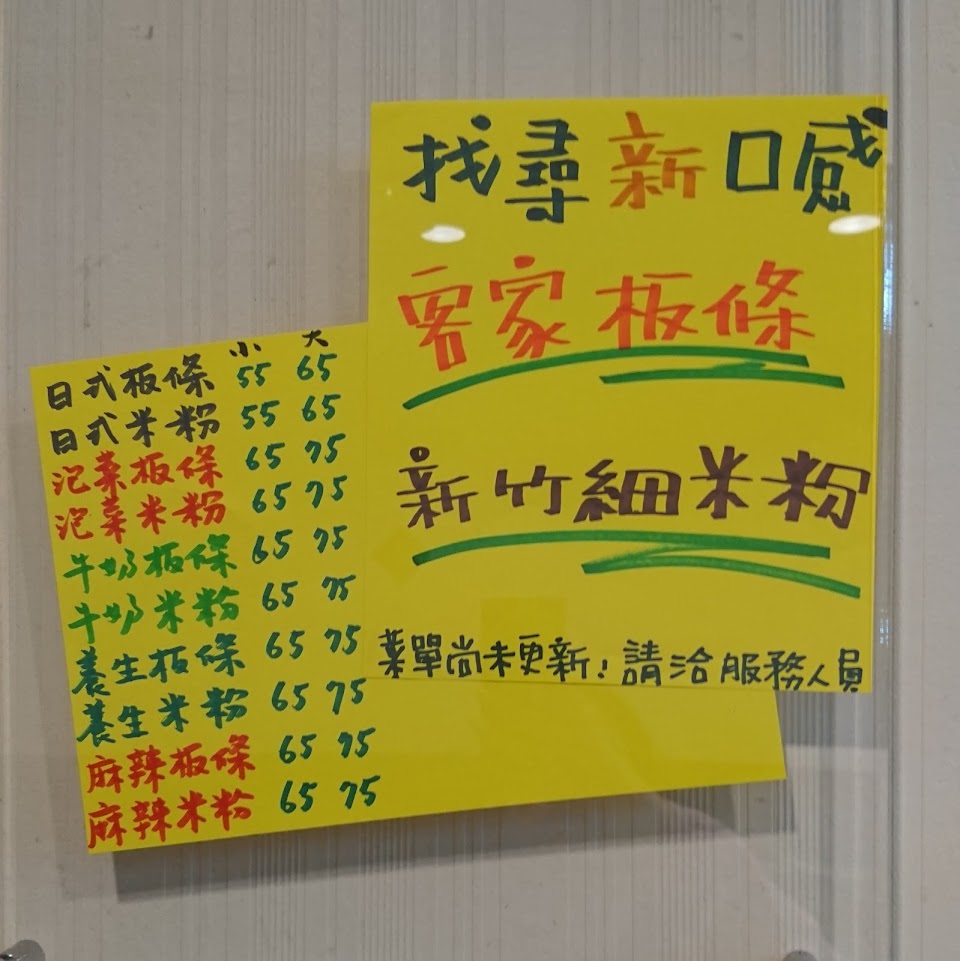 找尋新口感
客家板條
新竹細米粉
菜單尚未更新!請洽服務人員
小 大
日式板條 55 65
日式米粉 55 65
泡菜板條 65 75
泡菜米粉 65 75
牛奶板條 65 75
牛奶米粉 65 75
養生板條 65 75
養生米粉 65 75
麻辣板條 65 75
麻辣米粉 65 75